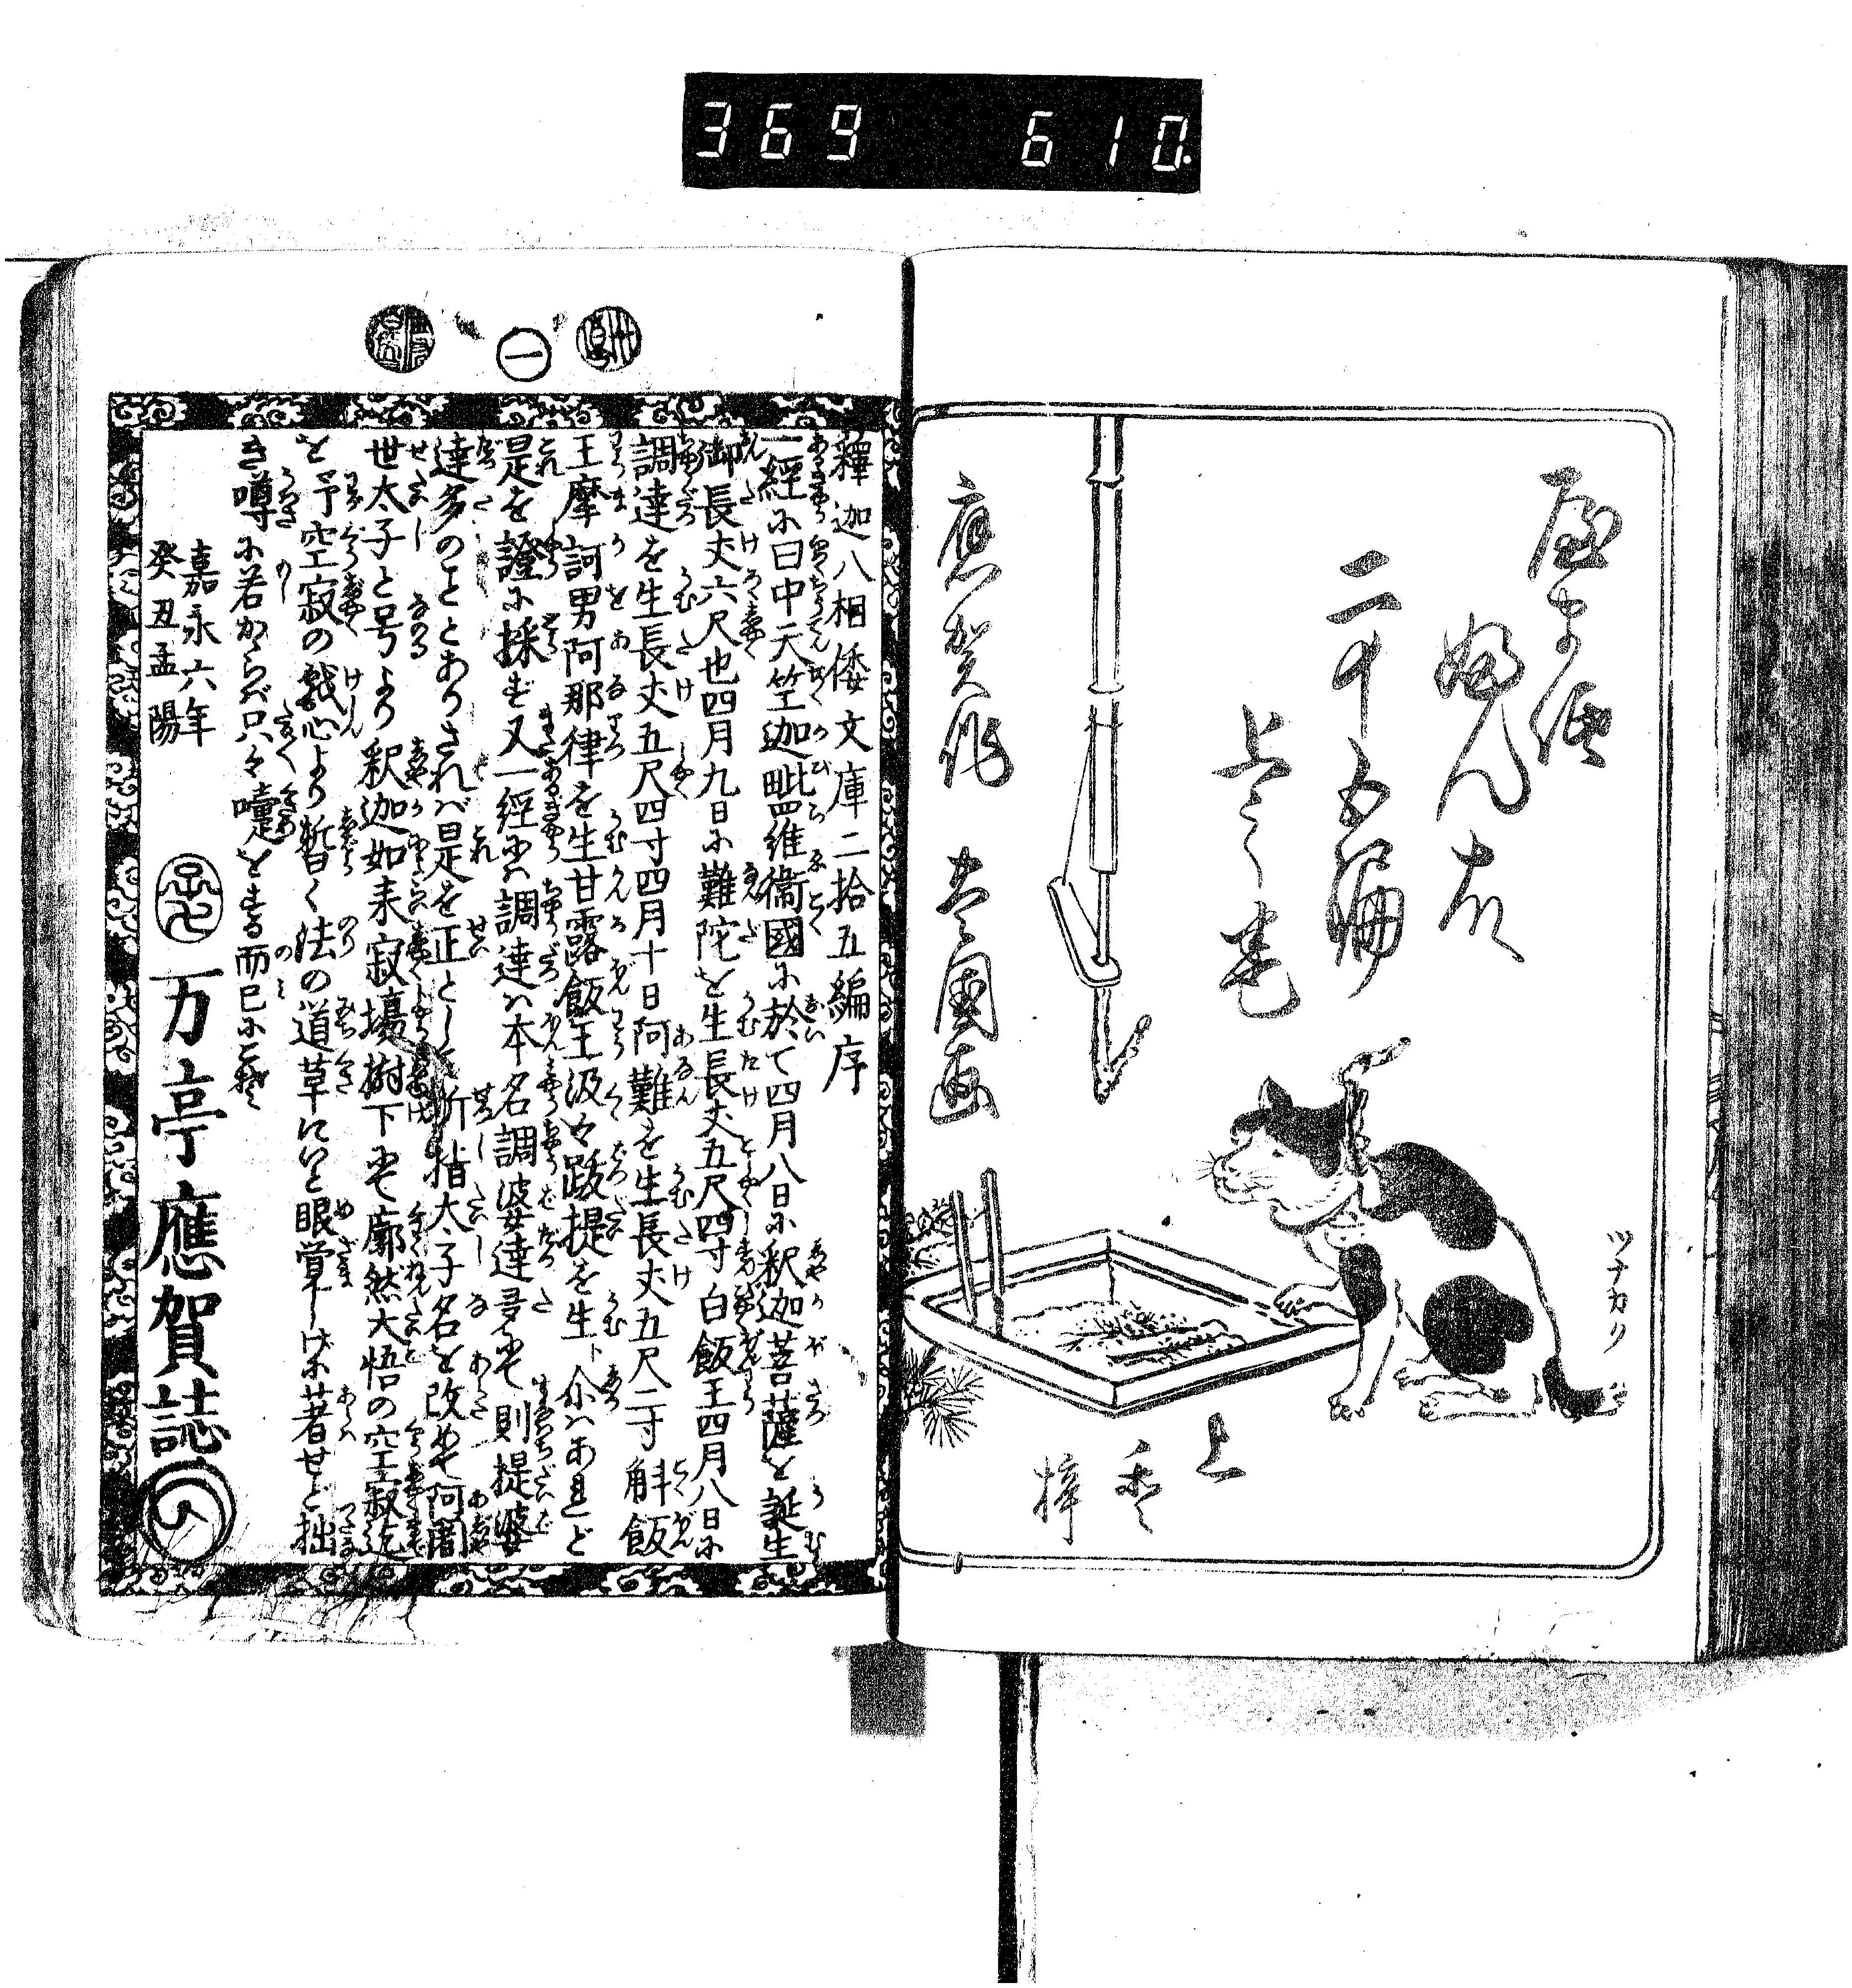 369 610.
二十五編
上之巻
應賀作
国画
ツナカリ
上
梓
一
釋迦八相倭文庫二拾五編序
一經に曰中天竺迦毗羅衞國に於て四月八日に釈迦菩薩を誕生
御長丈六尺也四月九日に難陀を生長丈五尺四寸白飯王四月八日に
調達を生長丈五尺四寸四月十日阿難を生長丈五尺二寸斛飯
王摩訶男阿那律を生甘露飯王汲々跋提を生ト尒はあれど
是を證に採ず又一經には調達は本名調波達多にて則提婆
達多のこととありされば是を正として折指太子名を改めて阿闍
世太子と号より釈迦如来寂場樹下にて廓然大悟の空寂迄
を予空寂の戯心より暫く法の道草にいと眼覚しげに著せど拙
き噂に若からバ只々嚏をする而已にこそ
嘉永六年
癸丑孟陽
万亭應賀誌